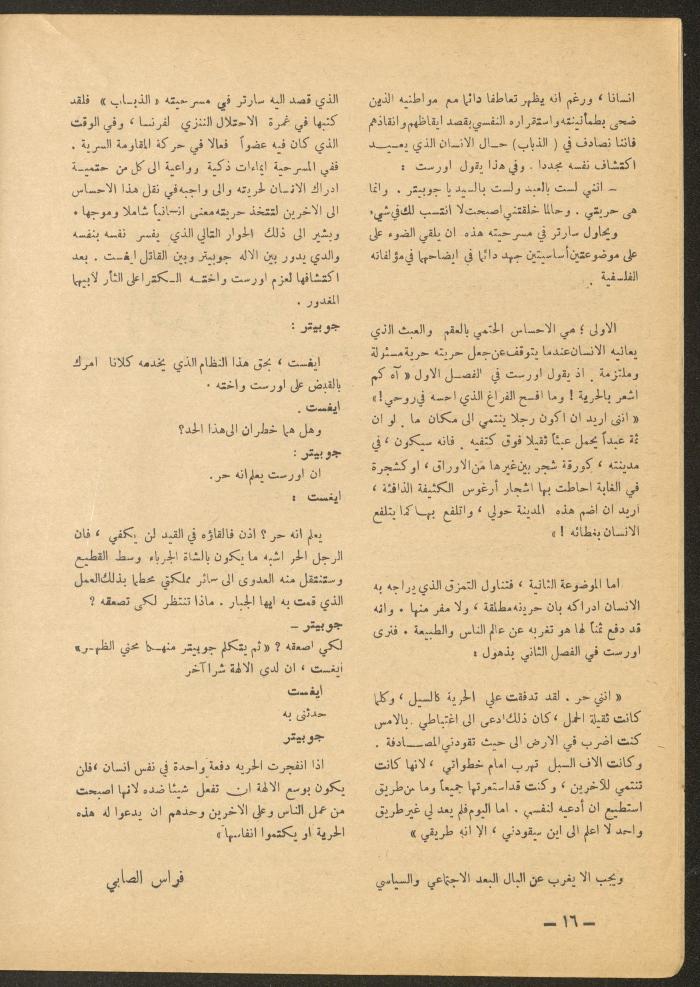 انسانا ، ورغم انه يظهر تعاطفا دائما مع مواطنيه الذين
ضحى بطمأنينته واستقراره النفسي بقصد ايقاظهم وانقاذهم
فاننا نصادف في ( الذباب ) حال الانسان الذي يعيد
اكتشاف نفسه مجددا . وفي هذا يقول اورست :
ــ انني لست بالعبد ولست بالسيد يا جوبيتر . وانما
هى حريتي . وحالما خلقتني اصبحت لا انتسب لك في شيء
ويحاول سارتر في مسرحيته هذه ان يلقي الضوء على
على موضوعتين أساسيتين جهد دائما في ايضاحهما في مؤلفاته
الفلسفية .
الاولى ؛ هي الاحساس الحتمي بالعقم والعبث الذي
يعانيه الانسان عندما يتوقف عن جعل حريته حرية مسئولة
وملتزمة . اذ يقول اورست في الفصل الاول « آه كم
اشعر بالحرية ! وما افسح الفراغ الذي احسه في روحي ! »
« انني اريد ان اكون رجلا ينتمي الى مكان ما . لو ان
ثمة عبداً يحمل عبئاً ثقيلا فوق كتفيه . فانه سيكون ، في
مدينته ، كورقة شجر بين غيرها من الاوراق ، او كشجرة
في الغابة احاطت بها اشجار أرغوس الكثيفة الدافئة ،
اريد ان اضم هذه المدينة حولي ، واتلفع بها كما يتلفع
الانسان بغطائه ! »
اما الموضوعة الثانية ، فتناول التمزق الذي يراجه به
الانسان ادراكه بان حريته مطلقة ، ولا مفر منها . وانه
قد دفع ثمناً لها هو تغربه عن عالم الناس والطبيعة . فنرى
اورست في الفصل الثاني بذهول :
« انني حر . لقد تدفقت علي الحرية كالسيل ، وكلما
كانت ثقيلة الحمل ، كان ذلك ادعى الى اغتباطي . بالامس
كنت اضرب في الارض الى حيث تقودني المصادفة .
وكانت الاف السبل تهرب امام خطواتي ، لانها كانت
تنتمي للآخرين ، وكنت قد استعرتها جميعاً وما من طريق
استطيع ان أدعيه لنفسي . اما اليوم فلم يعد لي غير طريق
واحد لا اعلم الى اين سيقودني ، الا انه طريقي »
ويجب الا يغرب عن البال البعد الاجتماعي والسياسي
الذي قصد اليه سارتر في مسرحيته « الذباب » فلقد
كتبها في غمرة الاحتلال النازي لفرنسا ، وفي الوقت
الذي كان فيه عضواً فعالا في حركة المقاومة السرية .
ففي المسرحية ايماءات ذكية وراعية الى كل من حتمية
ادراك الانسان لحريته والى واجبه في نقل هذا الاحساس
الى الاخرين لتتخذ حريته معنى انسانياً شاملا وموجها .
ويشير الى ذلك الحوار التالي الذي يفسر نفسه بنفسه
والدي يدور بين الاله جوبيتر وبين القاتل ايغست . بعد
اكتشافها لعزم اورست واخته الكترا على الثأر لابيهما
المغدور .
جوبيتر :
ايغست ، بحق هذا النظام الذي يخدمه كلانا امرك
بالقبض على اورست واخته .
ايغست .
وهل هما خطران الى هذا الحد؟
جوبيتر :
ان اورست يعلم انه حر .
ايغست :
يعلم انه حر ؟ اذن فالقاؤه في القيد لن يكفي ، فان
الرجل الحر اشبه ما يكون بالشاة الجرباء وسط القطيع
وستنتقل منه العدوى الى سائر مملكتي محطما بذلك العمل
الذي قمت به ايها الجبار . ماذا تنتظر لكى تصعقه ؟
جوبيتر ــ
لكي اصعقه ؟ « ثم يتكلم جوبيتر منهكا محني الظهر »
ايغست ، ان لدى الالهة شرا آخر
ايغست
حدثنى به
جوبيتر
اذا انفجرت الحريه دفعة واحدة في نفس انسان ، فلن
يكون بوسع الالهة ان تفعل شيئا ضده لانها اصبحت
من عمل الناس وعلى الاخرين وحدهم ان يدعوا له هذه
الحرية او يكتموا انفاسها »
فراس الصابي
ــ ١٦ ــ